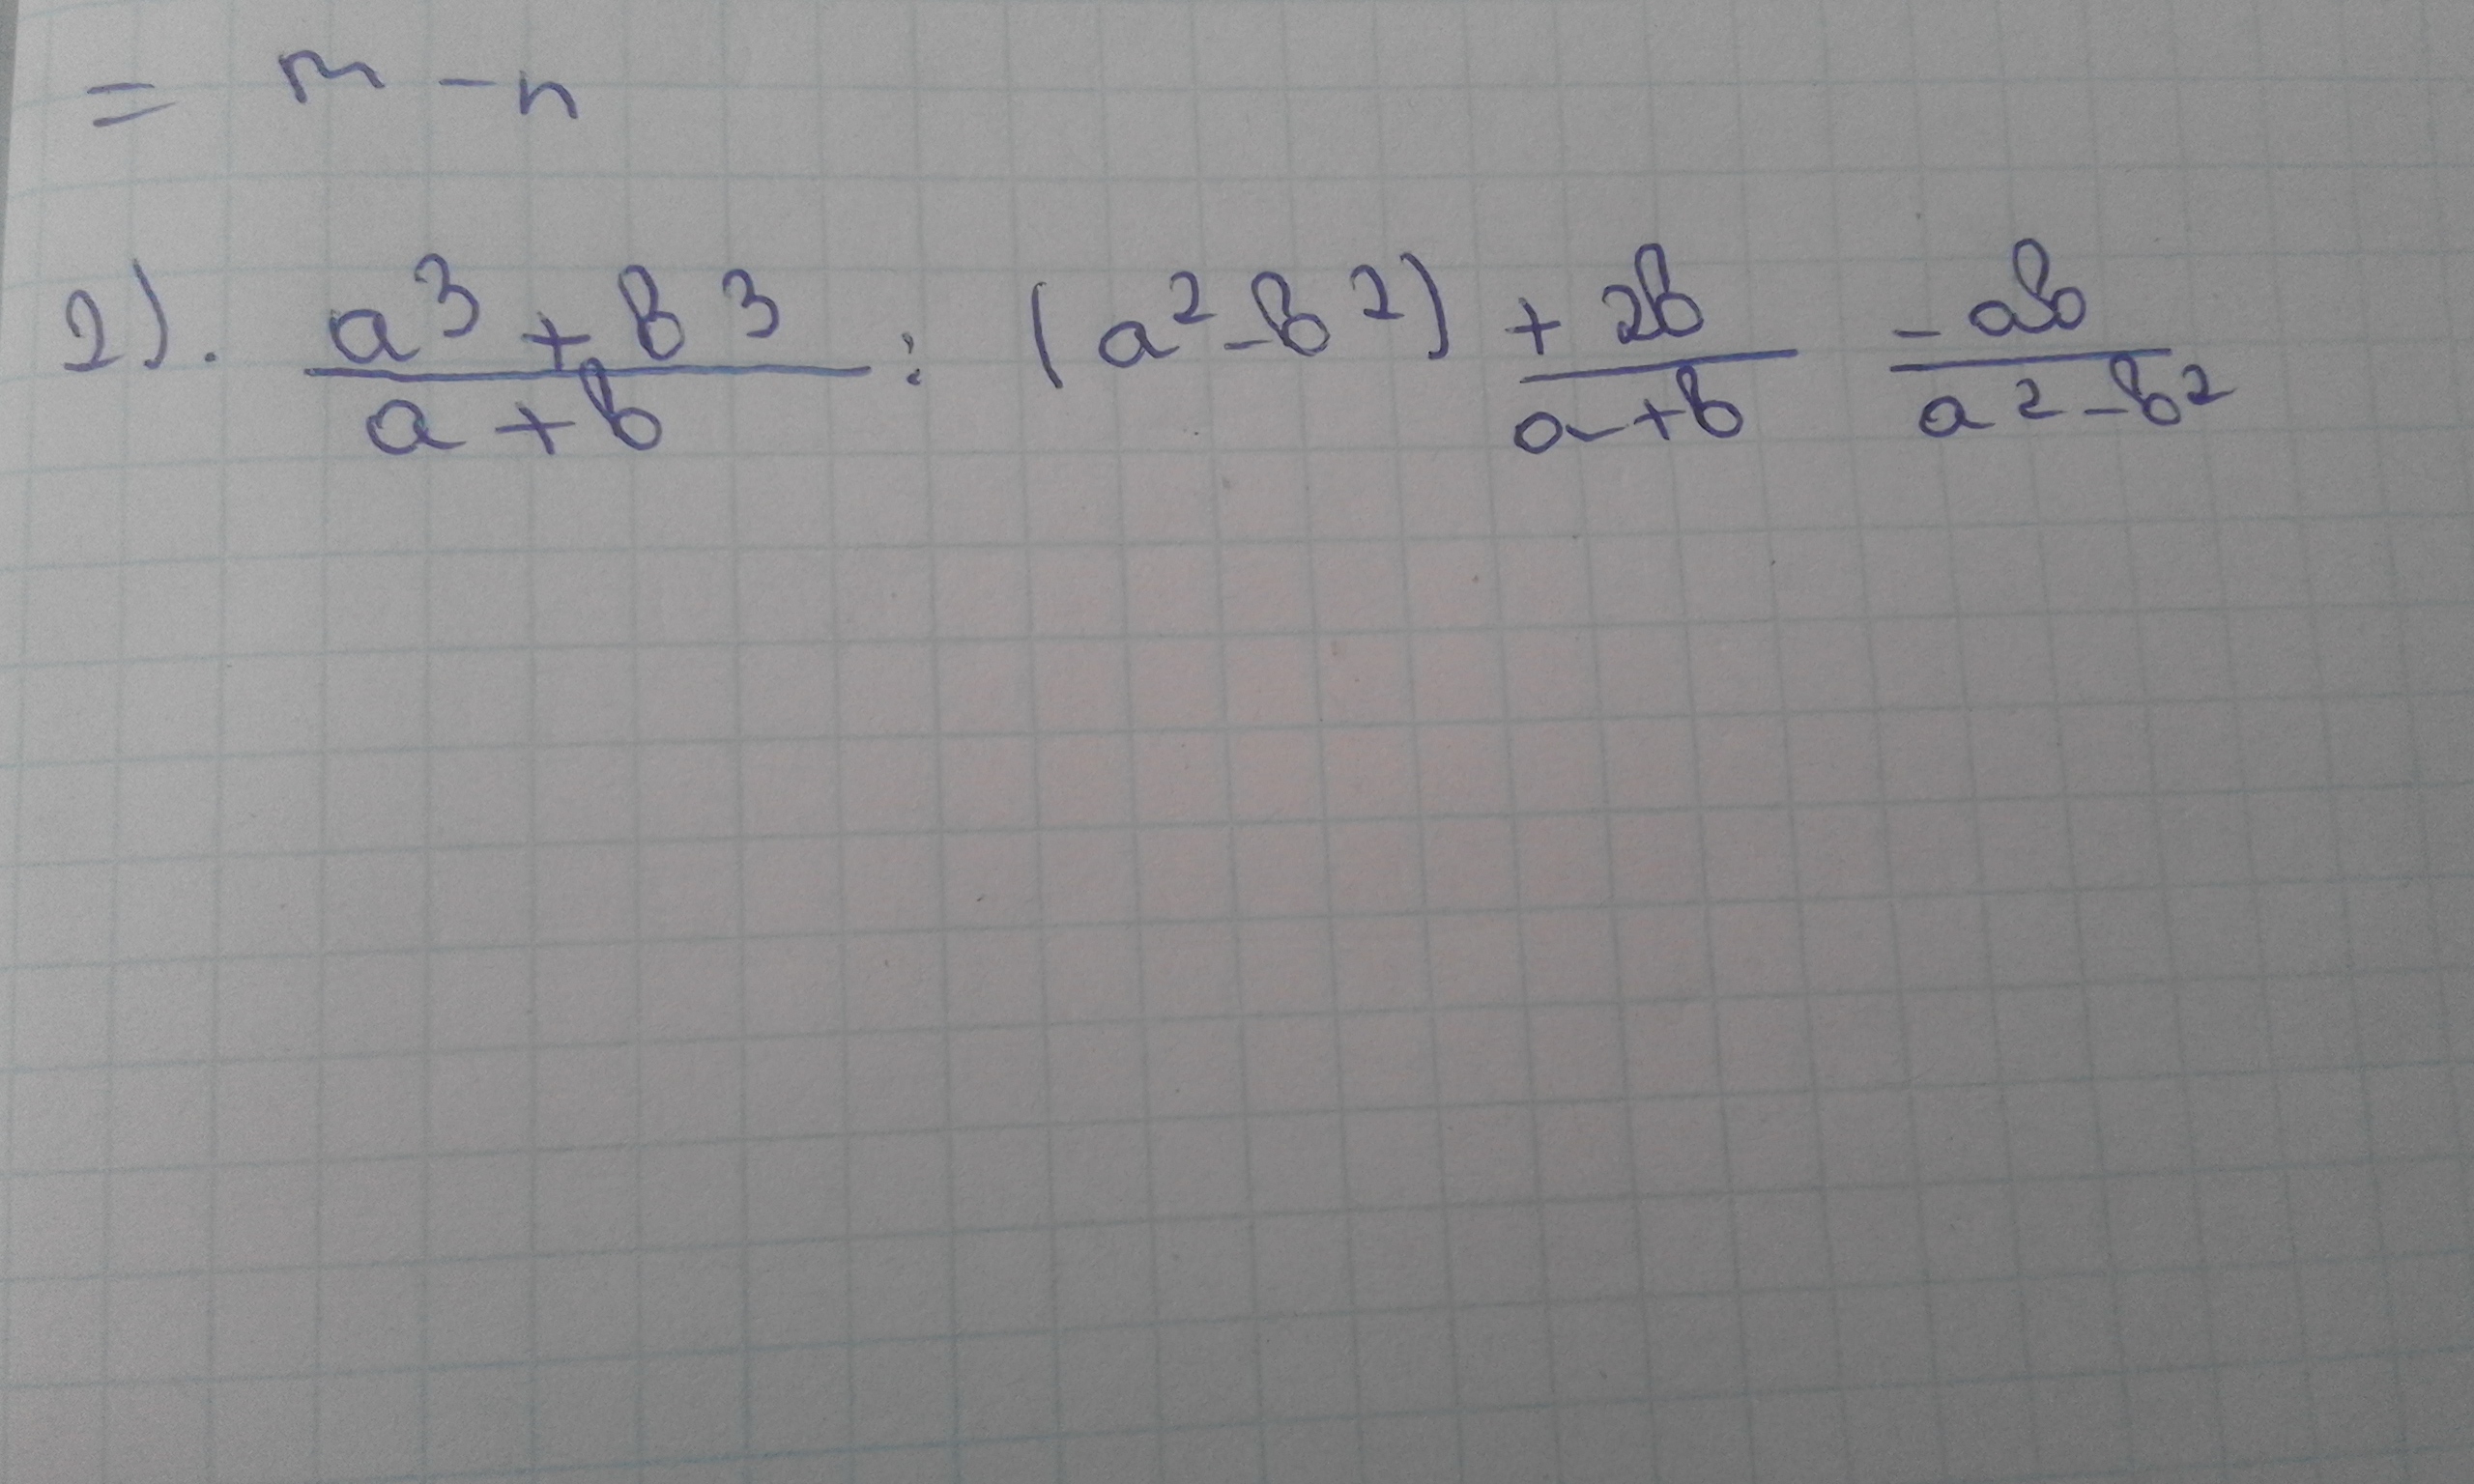 = m - n
2). \frac{a^3 + b^3}{a + b} : (a^2 - b^2) + \frac{2b}{a + b} - \frac{ab}{a^2 - b^2}